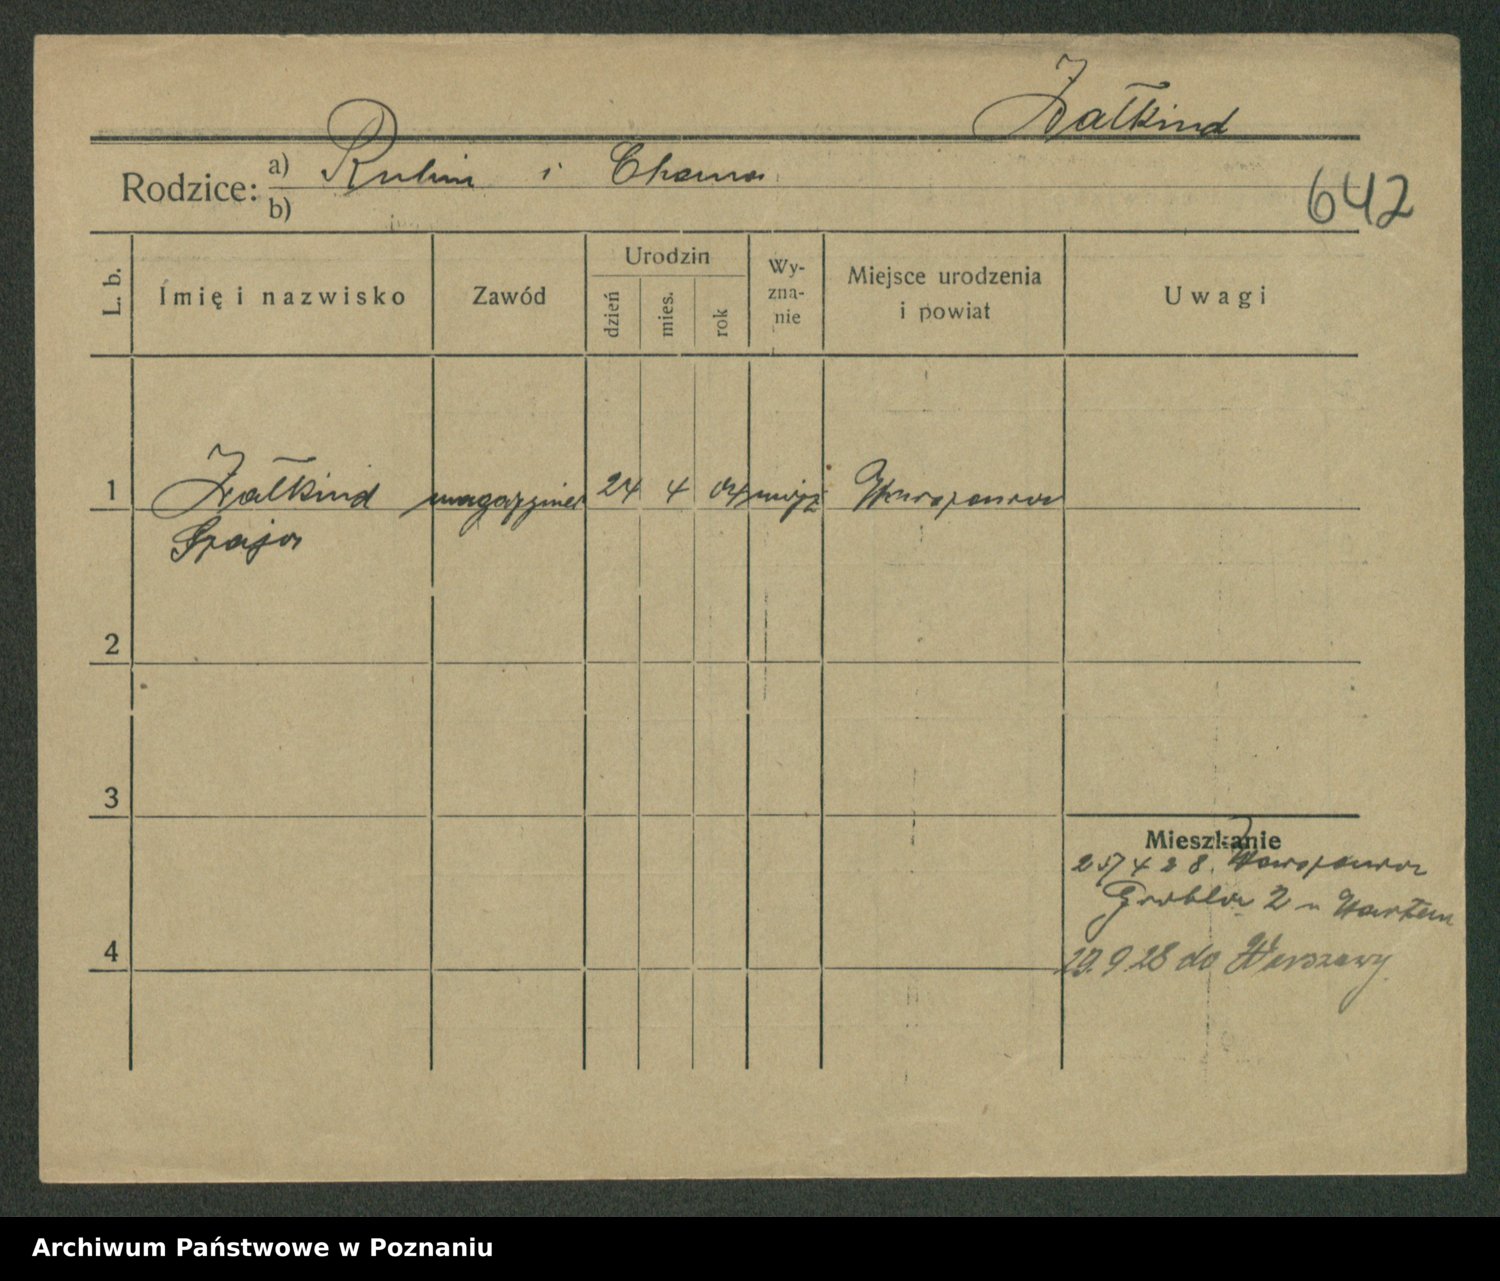 Załkind
Rodzice: a) Rubin i Chana
b)
642
L. b.
Imię i nazwisko
Zawód
Urodzin
dzień
mies.
rok
Wy-
zna-
nie
Miejsce urodzenia
i powiat
Uwagi
1 Załkind magazynier 24 4 04 mojż Warszawa
Szaja
2
3
Mieszkanie
25/4 28. Warszawa
Grobla 2
4
29.9.28 do Warszawy
Archiwum Państwowe w Poznaniu